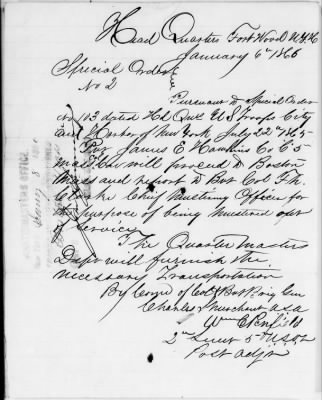 Head Quarters Fort Wood N.Y.H
January 6th 1866
Special Orders
No 2
Pursuant to Special Order
No 103 dated Hd Qrs U S Troops City
and Harbor of New York July 22nd 1865
Pvt James E Hawkins Co C 5
Mass will proceed to Boston
Mass and report to Bvt Col F. N.
Clarke Chief Mustering Officer for
the purpose of being Mustered out
of Service
The Quarter Masters
Dept will furnish the
necessary Transportation
By Comd of Col & Bvt Brig Gen
Charles S Merchant U S A
Wm E Penfield
2nd Lieut 5th
Post Adjt
OFFICE
8